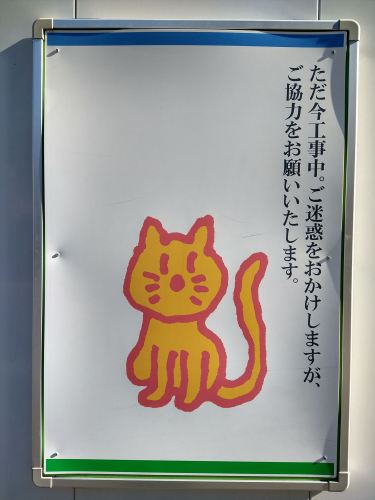 ただ今工事中。ご迷惑をおかけしますが、
ご協力をお願いいたします。